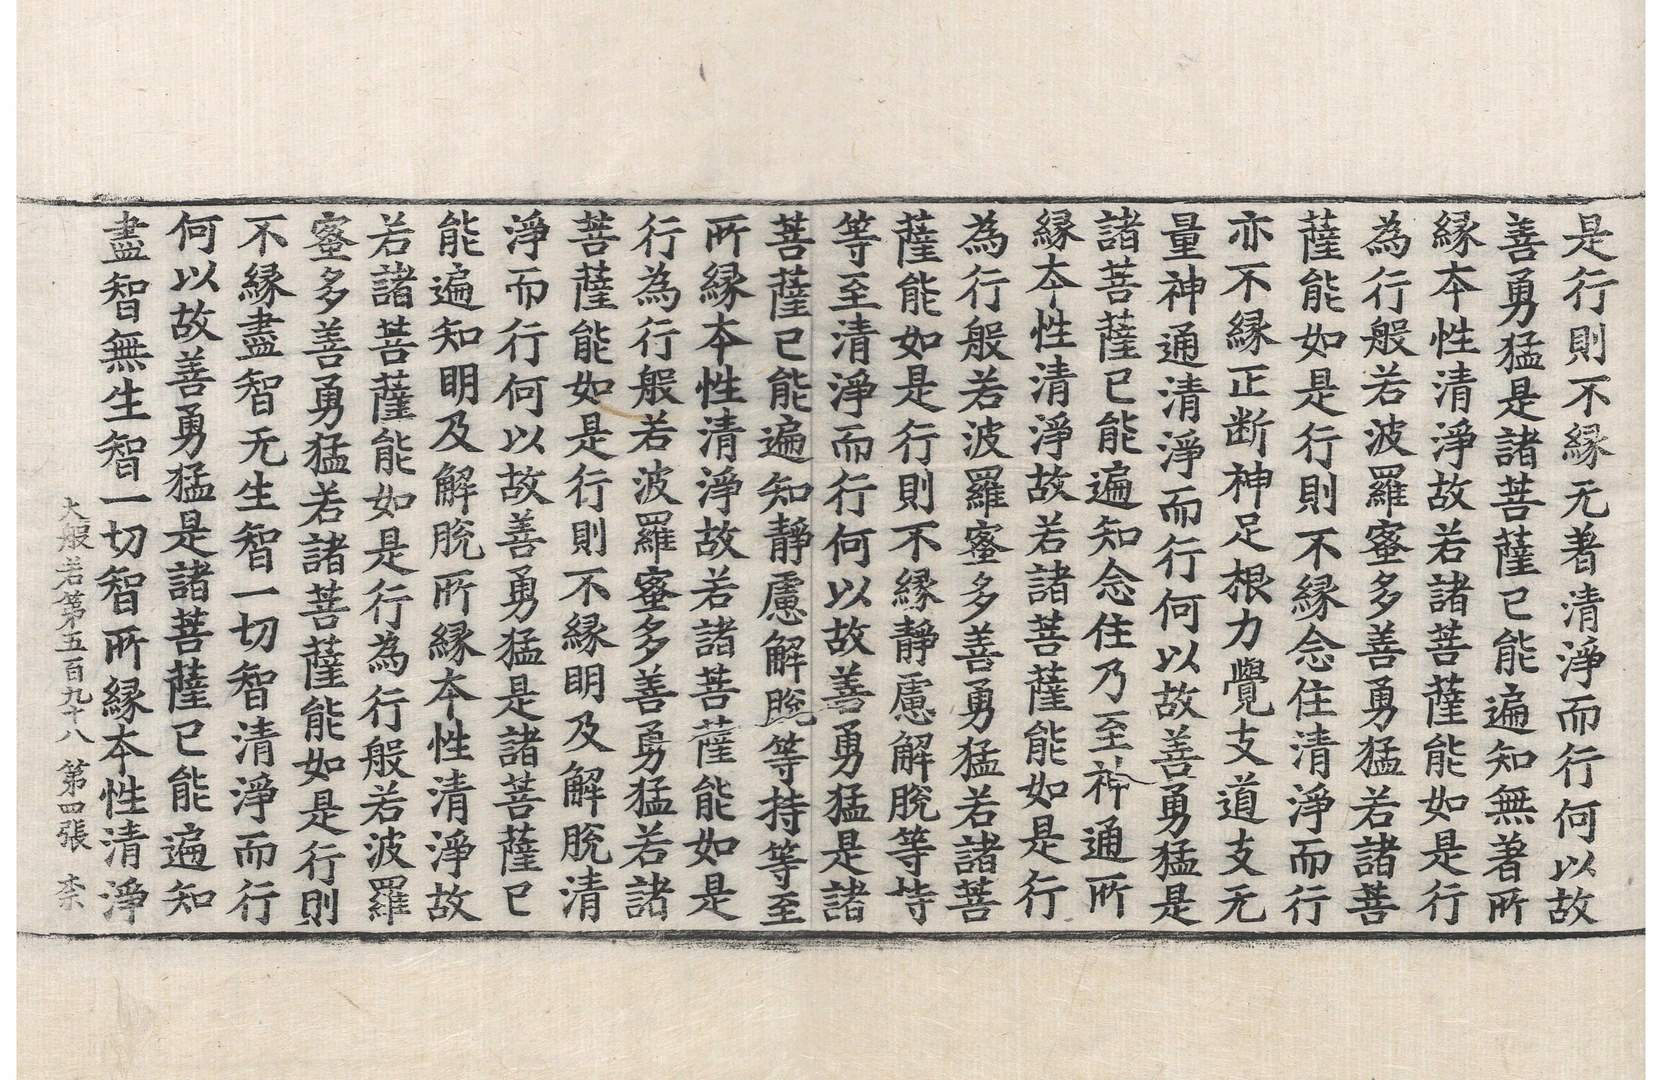 是行則不縁无著清淨而行何以故
善勇猛是諸菩薩已能遍知無著所
縁本性清淨故若諸菩薩能如是行
為行般若波羅蜜多善勇猛若諸菩
薩能如是行則不縁念住清淨而行
亦不縁正断神足根力覺支道支无
量神通清淨而行何以故善勇猛是
諸菩薩已能遍知念住乃至神通所
縁本性清淨故若諸菩薩能如是行
為行般若波羅蜜多善勇猛若諸菩
薩能如是行則不縁靜慮解脫等持
等至清淨而行何以故善勇猛是諸
菩薩已能遍知靜慮解脫等持等至
所縁本性清淨故若諸菩薩能如是
行為行般若波羅蜜多善勇猛若諸
菩薩能如是行則不縁明及解脫清
淨而行何以故善勇猛是諸菩薩已
能遍知明及解脫所縁本性清淨故
若諸菩薩能如是行為行般若波羅
蜜多善勇猛若諸菩薩能如是行則
不縁盡智无生智一切智清淨而行
何以故善勇猛是諸菩薩已能遍知
盡智無生智一切智所縁本性清淨
大般若第五百九十八 第四張 柰